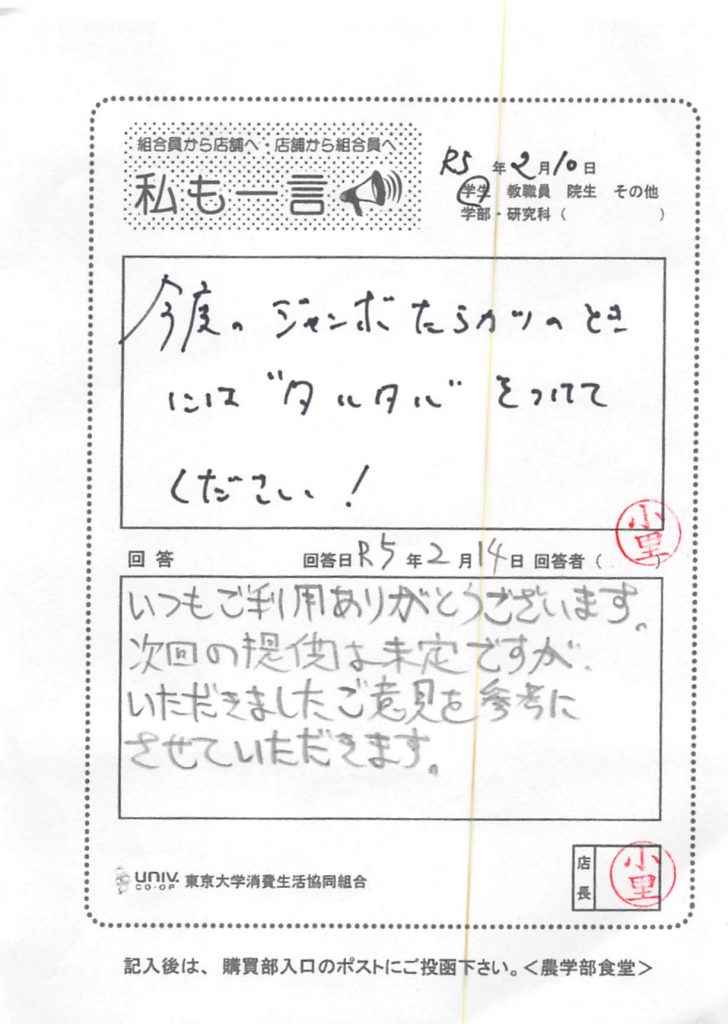 組合員から店舗へ・店舗から組合員へ
私も一言
R5年2月10日
学生 教職員 院生 その他
学部・研究科（ ）
今度のジャンボたらカツのとき
には"タルタル"をつけて
ください！
小里
回答 回答日R5年2月14日 回答者（ ）
いつもご利用ありがとうございます。
次回の提供は未定ですが、
いただきましたご意見を参考に
させていただきます。
UNIV. CO-OP 東京大学消費生活協同組合
店長 小里
記入後は、購買部入口のポストにご投函下さい。＜農学部食堂＞